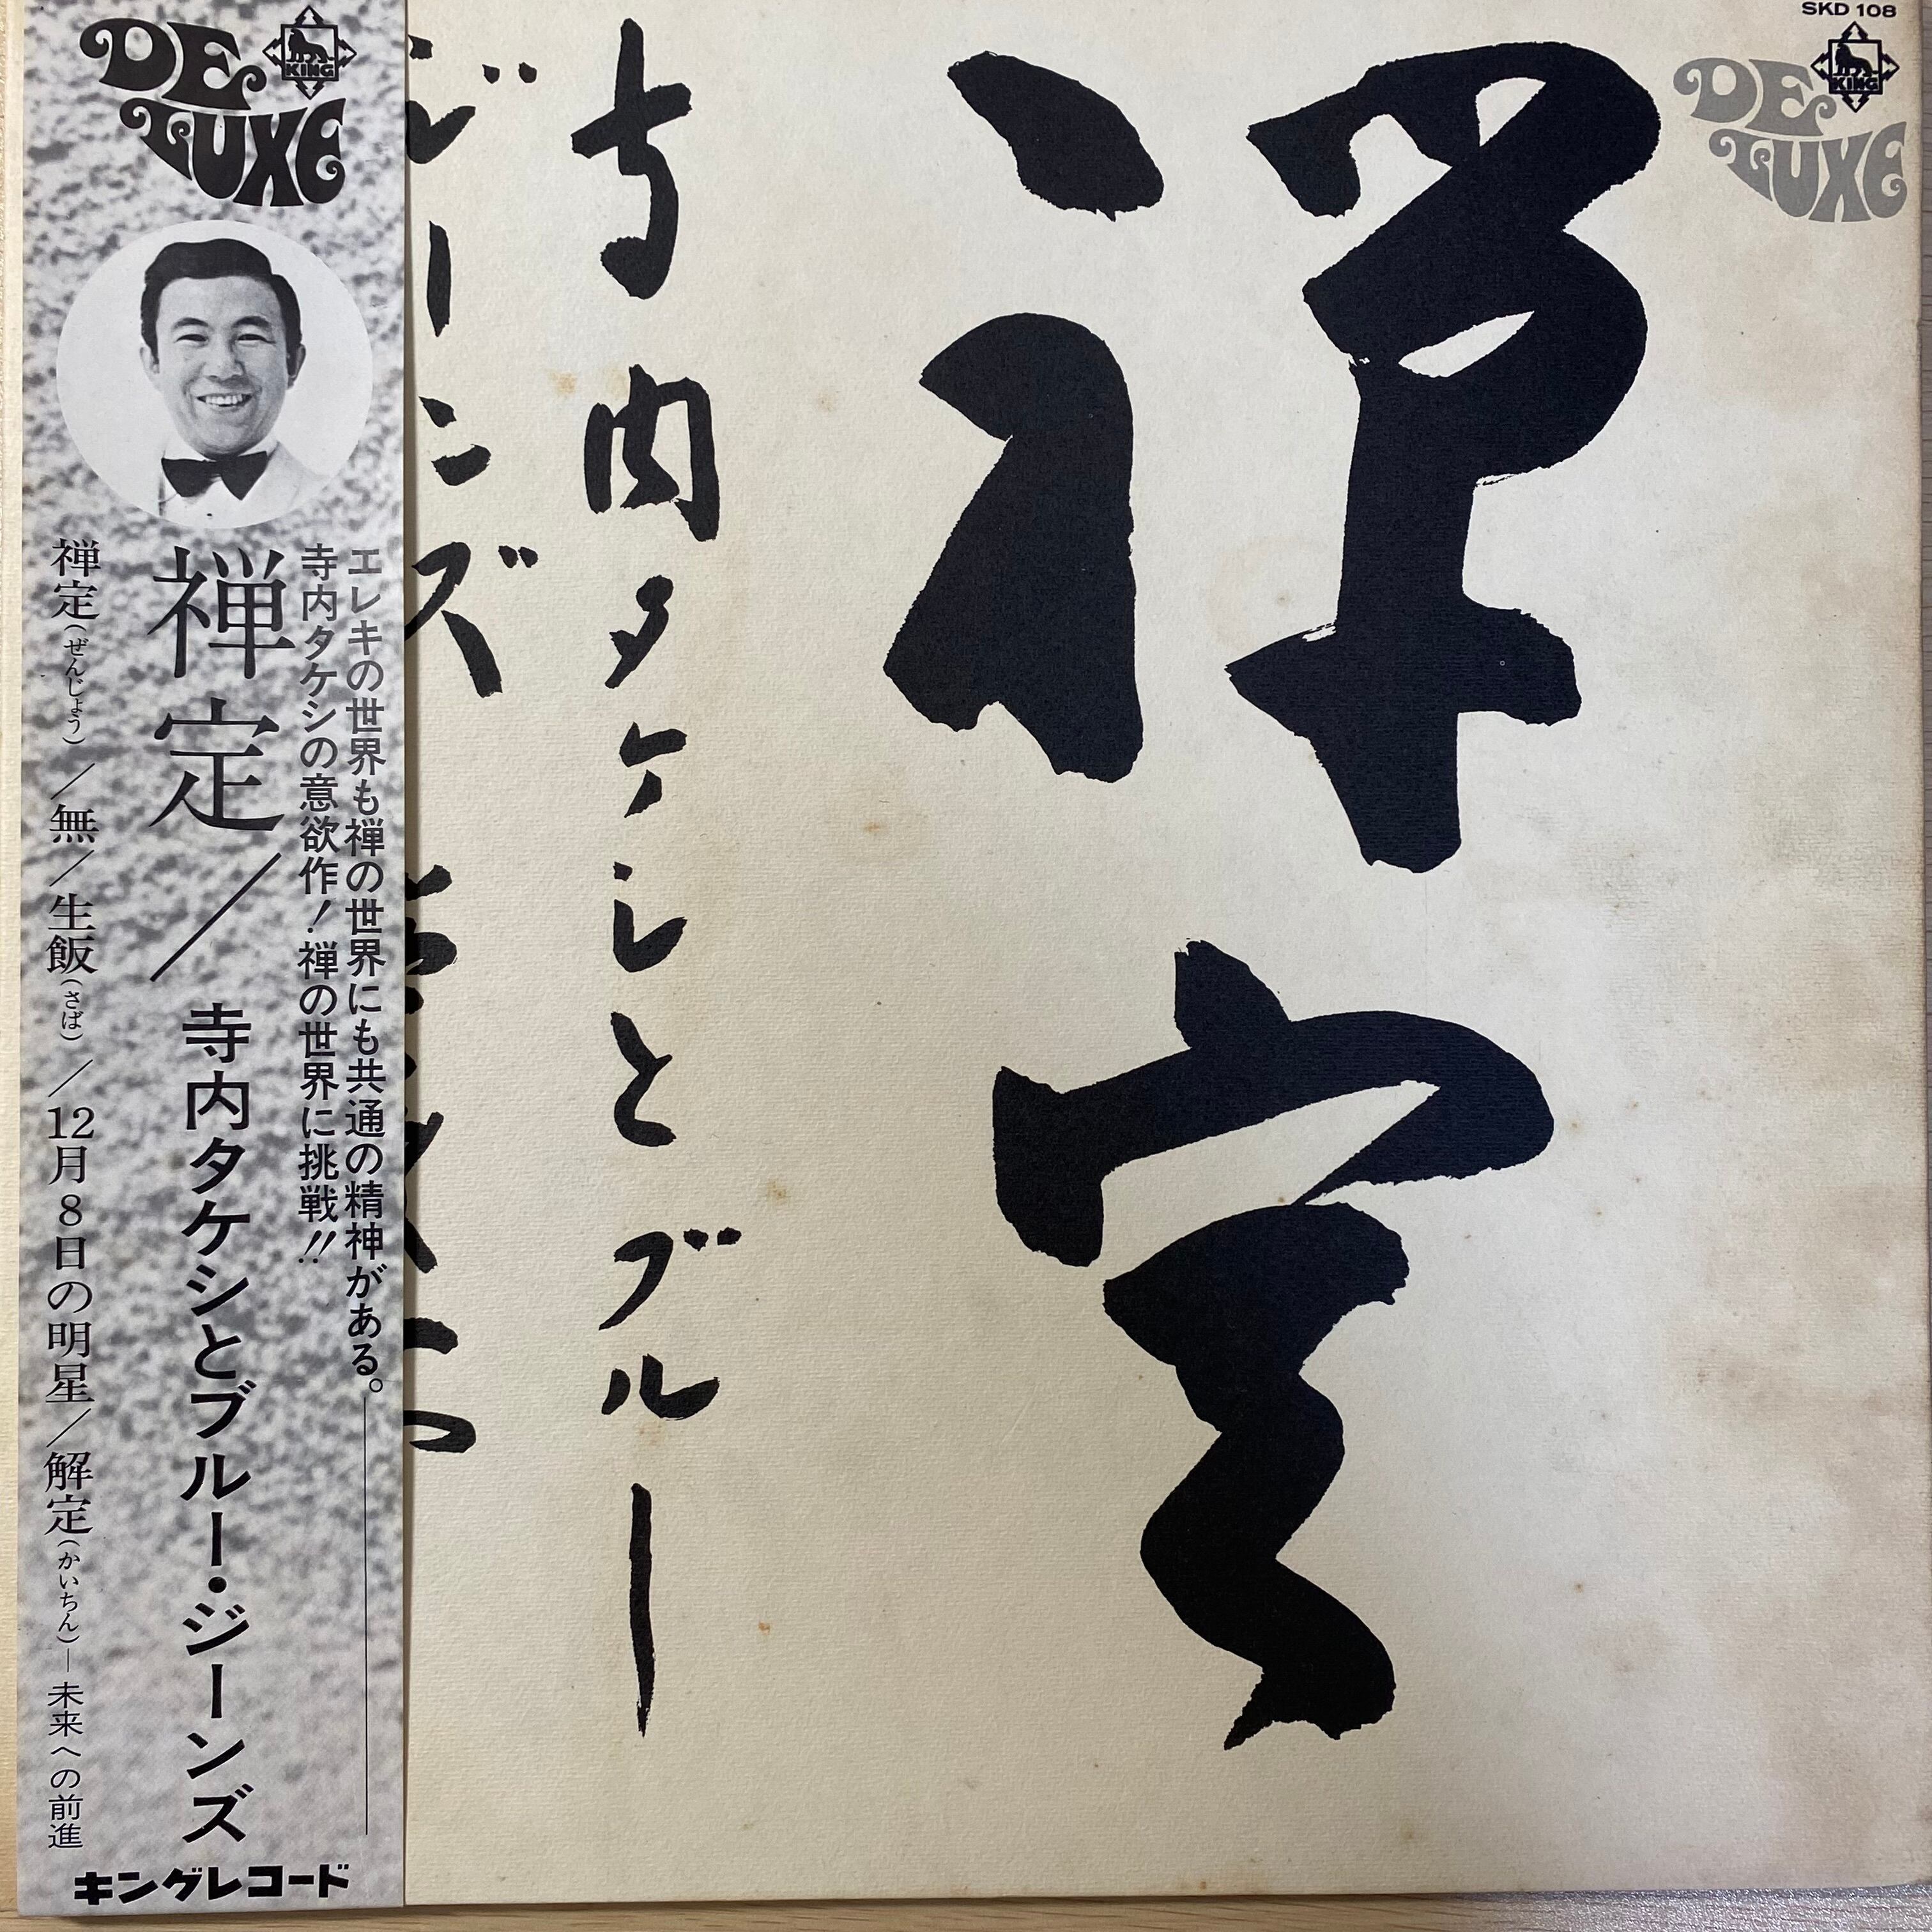 SKD 108
KING
DE
LUXE
禅定
寺内タケシとブルー
ジーンズ
DE
LUXE
KING
エレキの世界も禅の世界にも共通の精神がある。
寺内タケシの意欲作!禅の世界に挑戦!!
禅定/寺内タケシとブルー・ジーンズ
禅定(ぜんじょう)/無/生飯(さば)/12月8日の明星/解定(かいちん)—未来への前進
キングレコード